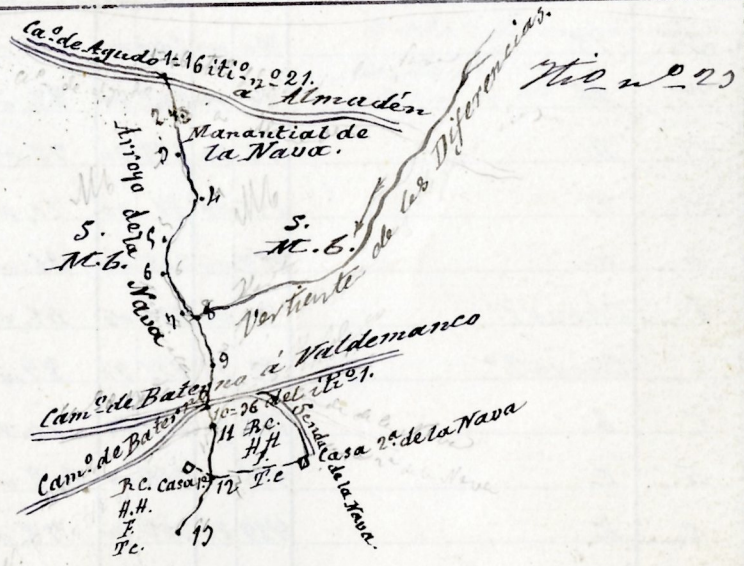 Itiº nº 23
Caº. de Agudo 1=16 itiº. nº 21.
á Almadén
2
Manantial de
la Nava.
3
Arroyo de la Nava
4
5
6
S.
M. b.
S.
M. b.
Vertiente de las Diferencias.
7
8
9
Camº. de Baterno á Valdemanco
Camº. de Baterno
10=36 del itiº 1.
11
R.C.
H.H.
F.
T.c
Senda de la Nava.
Casa 2ª. de la Nava
R.C. Casa 1ª
H.H.
F.
T.c.
12
13